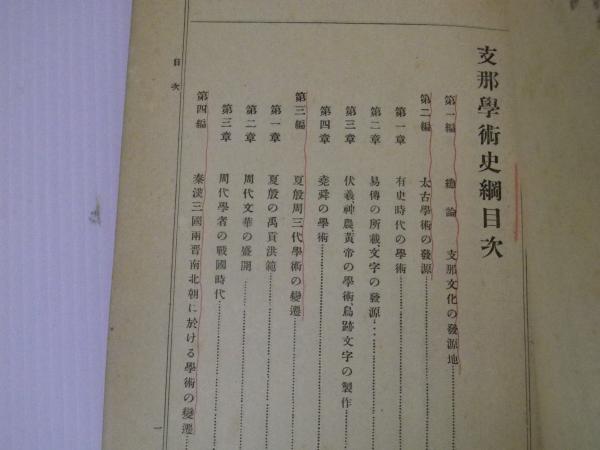 支那學術史綱目次
第一編 總論 支那文化の發源地
第二編 太古學術の發源
第一章 有史時代の學術
第二章 易傳の所載文字の發源
第三章 伏羲神農黃帝の學術、鳥跡文字の製作
第四章 堯舜の學術
第三編 夏殷周三代學術の變遷
第一章 夏殷の禹貢洪範
第二章 周代文華の盛開
第三章 周代學者の戰國時代
第四編 秦漢三國兩晋南北朝に於ける學術の變遷
目次
一